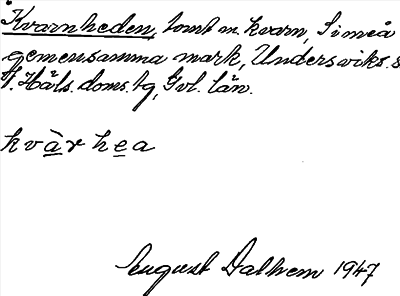 Kvarnheden, tomt m. kvarn, Simeå
gemensamma mark, Undersviks s
V. Häls. doms. tg, Gvl. län.
kvàrhea
August Dalhem 1947